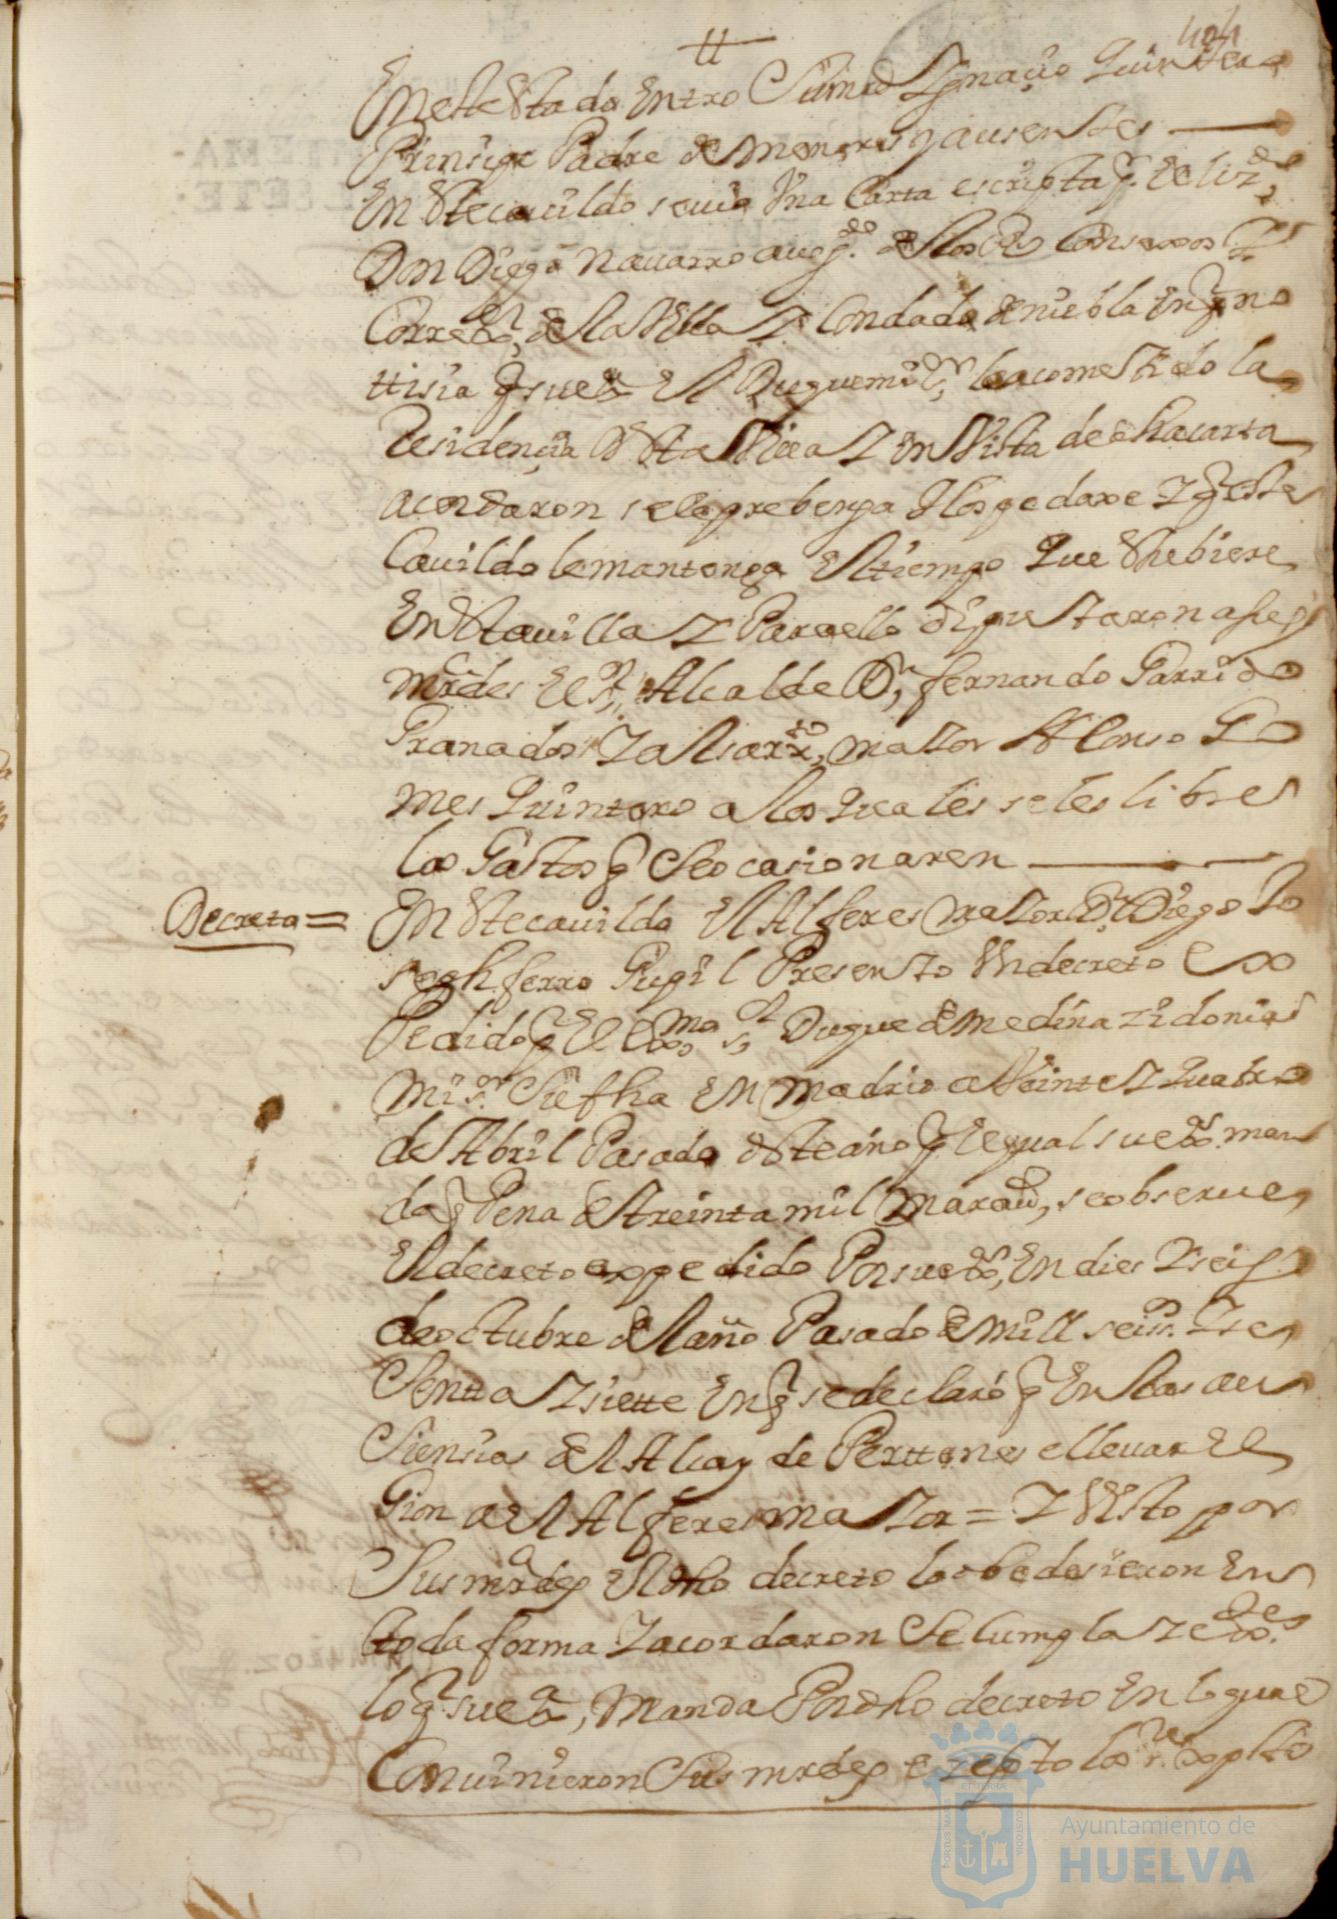 404
En este estado entro Su md Ygnaçio Quintero
Prinsipe Padre de Menores y ausentes
En este cauildo se uio Vna Carta escripta p.r el liz.do
Don Diego Nauarro auog.do de los R.s Consexos
Corre.or de la Villa y Condado de niebla en q no
ttisia q su ex.a el Duque mi s.r le a cometido la
Residençia desta Villa y en Vista de dha carta
acordaron se le prebenga Hospedaxe y q este
Cauildo lo mantenga el tiempo que estubiere
En esta uilla y Para ello diputaron a
mrdes el s.r Alcalde D.n fernando Garrido
Granados y al sarx.to maior Alonso Go
mes quintero a los quales se les libre
los Gastos q se ocasionaren
Decreto = En este cauildo el Alferes maior D.n Diego Jo
seph ferro Pupil Presento Vn decreto ex
Pedido p.r el ex.mo s.r Duque de medina zidonia
mi s.or Su fha en Madrid a Veinte y quatro
de Abril Pasado deste año p.r el qual su ex.a man
da p.r Pena de treinta mil marau, se obserue
el decreto expedido Por su ex.a, en dies y seis
de octubre del año Pasado de mill seis.s y se
senta y siette en q se declaró q en las au
siensias del Alcayde Perttenese lleuar el
Pion a el Alferes maior = y Visto por
Sus mrdes el dho decreto lo obedesieron en
toda forma y acordaron se cumpla y
lo q su ex.a, manda Por dho decreto en lo qual
Conuinieron Sus mrdes ezepto los
Ayuntamiento de
HUELVA